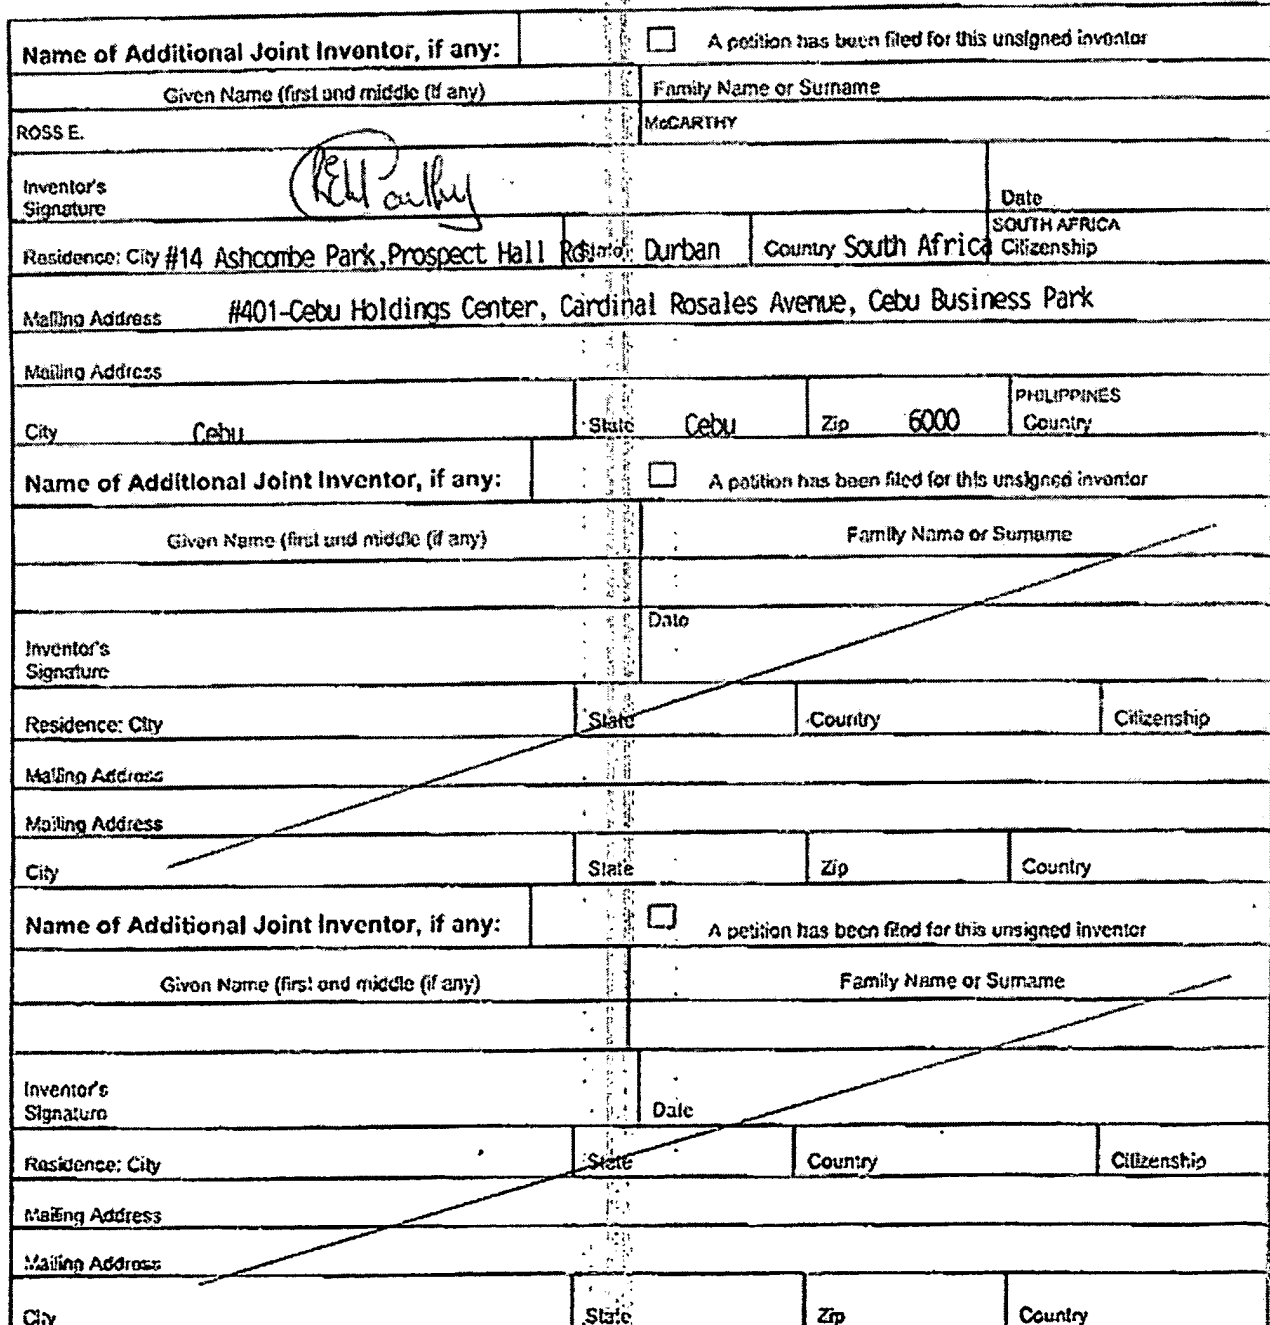 Name of Additional Joint Inventor, if any: A petition has been filed for this unsigned inventor
Given Name (first and middle (if any) Family Name or Surname
ROSS E. McCARTHY
Inventor's
Signature Date
Residence: City #14 Ashcombe Park,Prospect Hall Rd. State Durban Country South Africa SOUTH AFRICA Citizenship
Mailing Address #401-Cebu Holdings Center, Cardinal Rosales Avenue, Cebu Business Park
Mailing Address
City Cebu State Cebu Zip 6000 PHILIPPINES Country
Name of Additional Joint Inventor, if any: A petition has been filed for this unsigned inventor
Given Name (first and middle (if any) Family Name or Surname
Inventor's
Signature Date
Residence: City State Country Citizenship
Mailing Address
Mailing Address
City State Zip Country
Name of Additional Joint Inventor, if any: A petition has been filed for this unsigned inventor
Given Name (first and middle (if any) Family Name or Surname
Inventor's
Signature Date
Residence: City State Country Citizenship
Mailing Address
Mailing Address
City State Zip Country